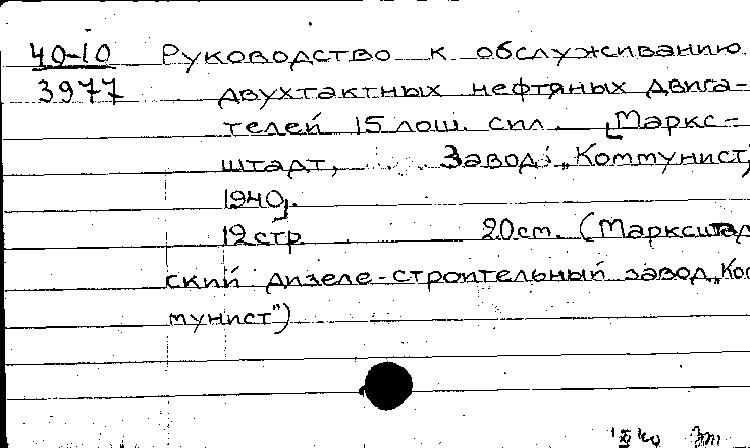 40-10 Руководство к обслуживанию
3977 двухтактных нефтяных двига-
телей 15 лош. сил. [Маркс-
штадт, Завод „Коммунист,
1940].
12 стр. 20 см. (Марксштад
ский дизеле-строительный завод „Ком
мунист")